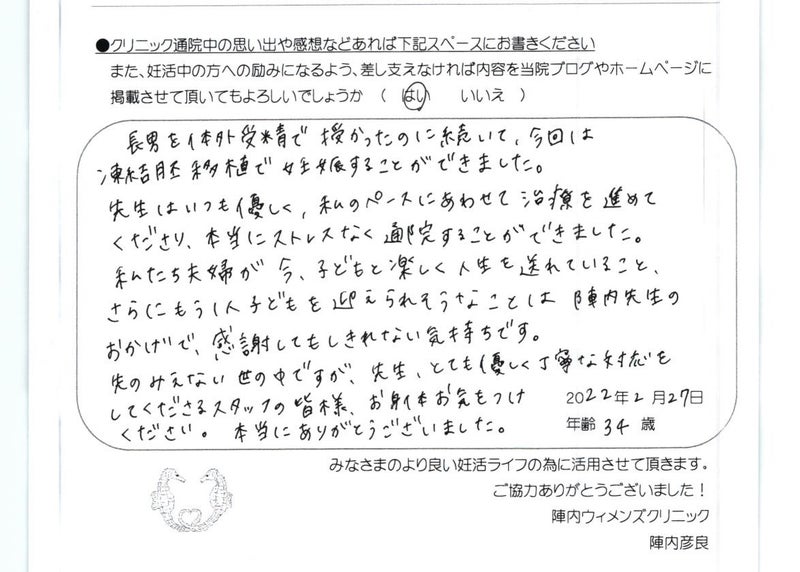 ●クリニック通院中の思い出や感想などあれば下記スペースにお書きください
また、妊活中の方への励みになるよう、差し支えなければ内容を当院ブログやホームページに
掲載させて頂いてもよろしいでしょうか ( はい いいえ )
長男を体外受精で授かったのに続いて、今回は
凍結胚移植で妊娠することができました。
先生はいつも優しく、私のペースにあわせて治療を進めて
くださり、本当にストレスなく通院することができました。
私たち夫婦が今、子どもと楽しく人生を送れていること、
さらにもう1人子どもを迎えられそうなことは陣内先生の
おかげで、感謝してもしきれない気持ちです。
先のみえない世の中ですが、先生、とても優しく丁寧な対応を
してくださるスタッフの皆様、お身体お気をつけ
ください。本当にありがとうございました。
2022年2月27日
年齢34歳
みなさまのより良い妊活ライフの為に活用させて頂きます。
ご協力ありがとうございました!
陣内ウィメンズクリニック
陣内彦良